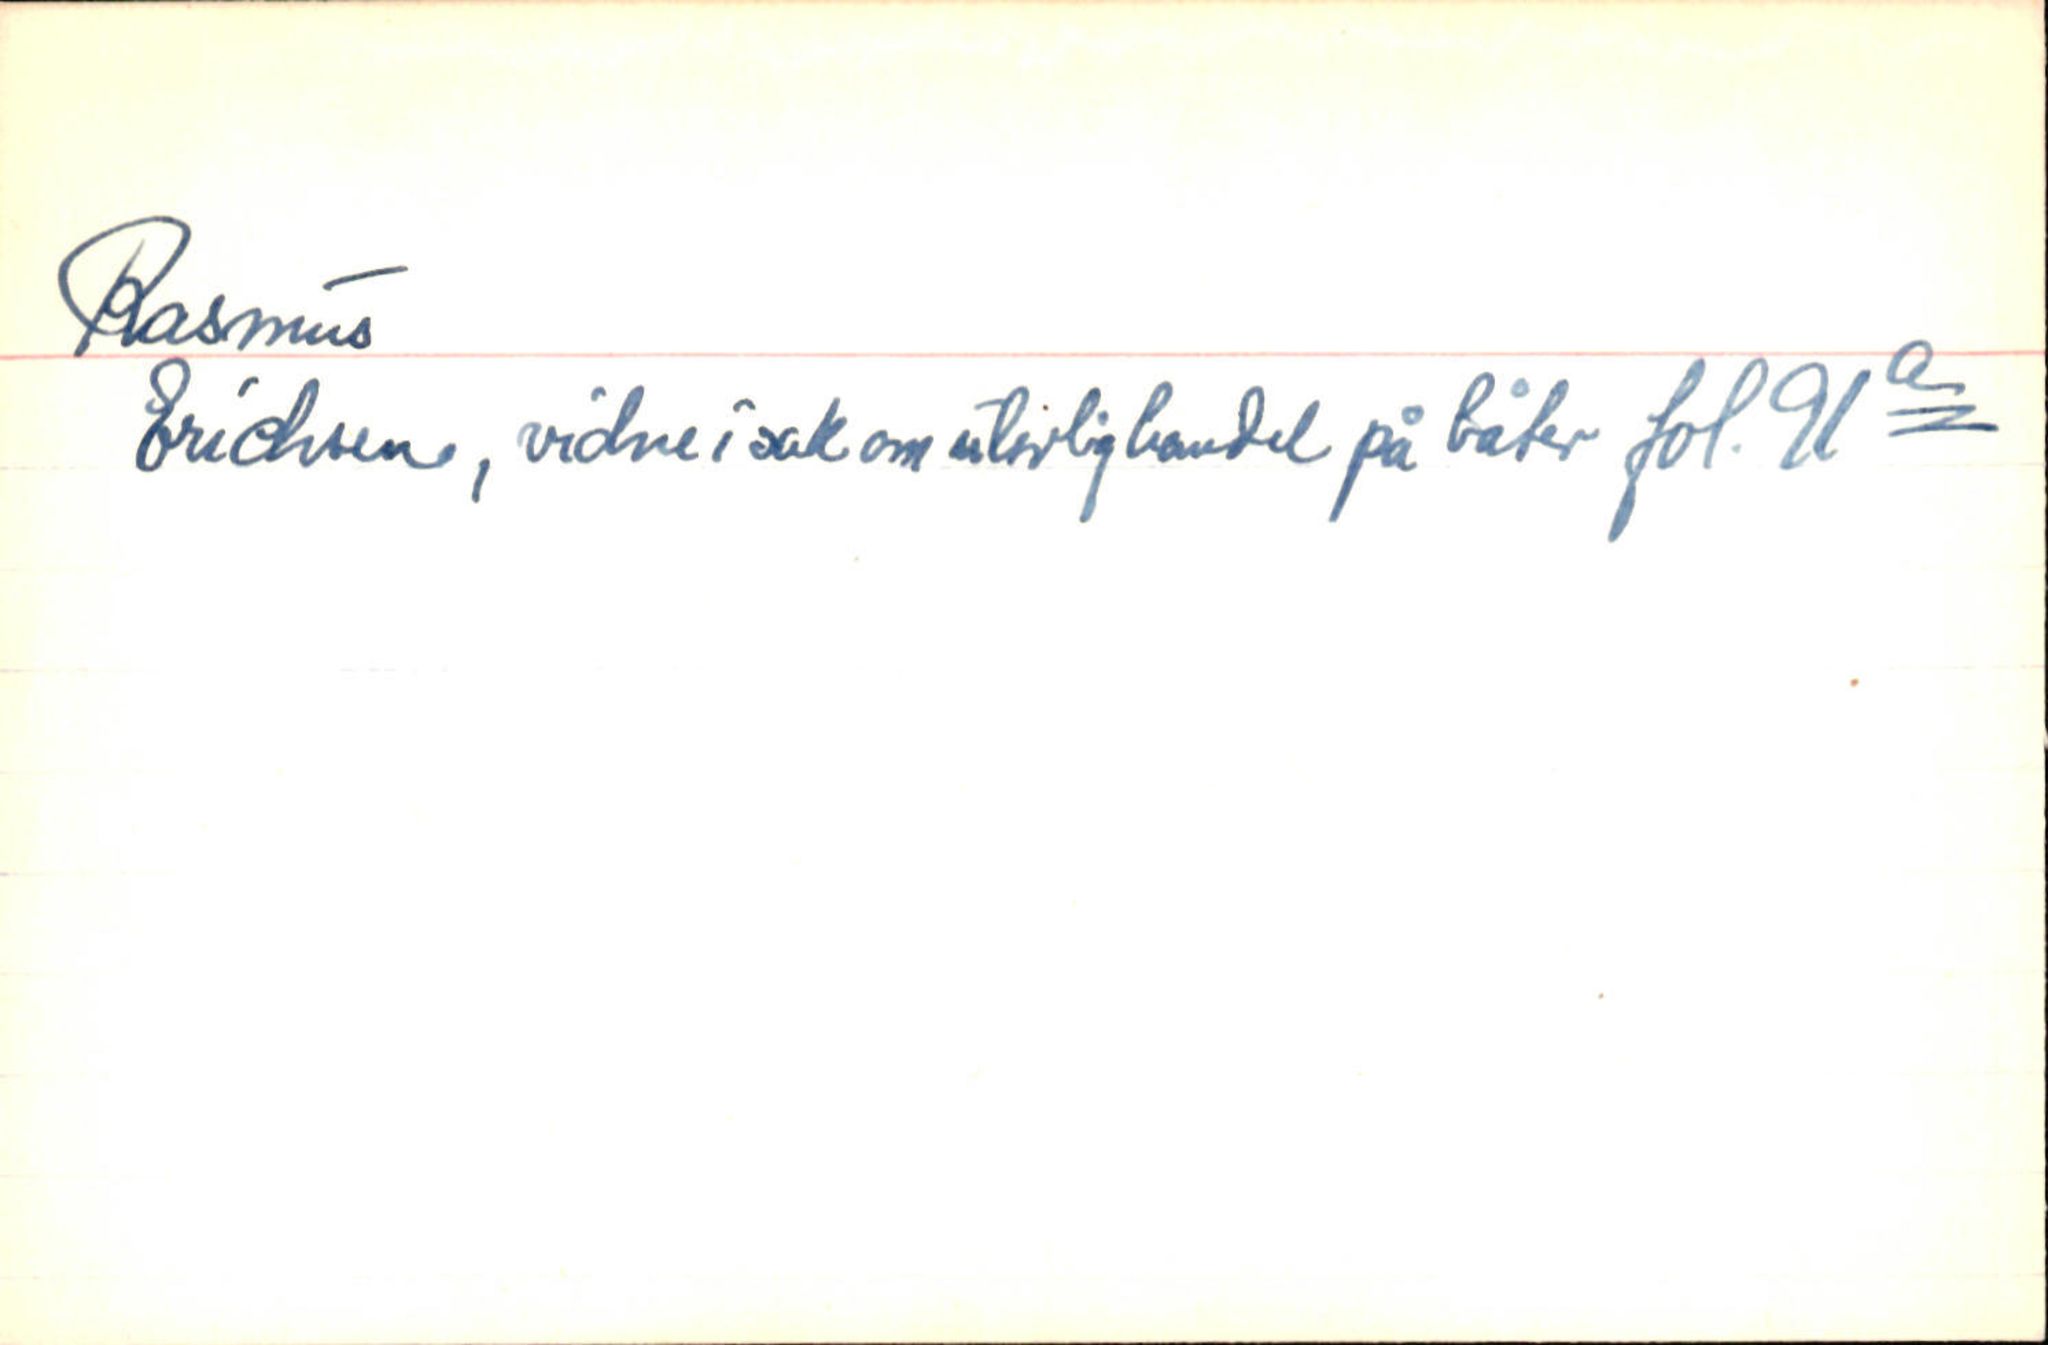 Rasmus
Erichsen, vidne i sak om ulovlig handel på båter fol. 91 a